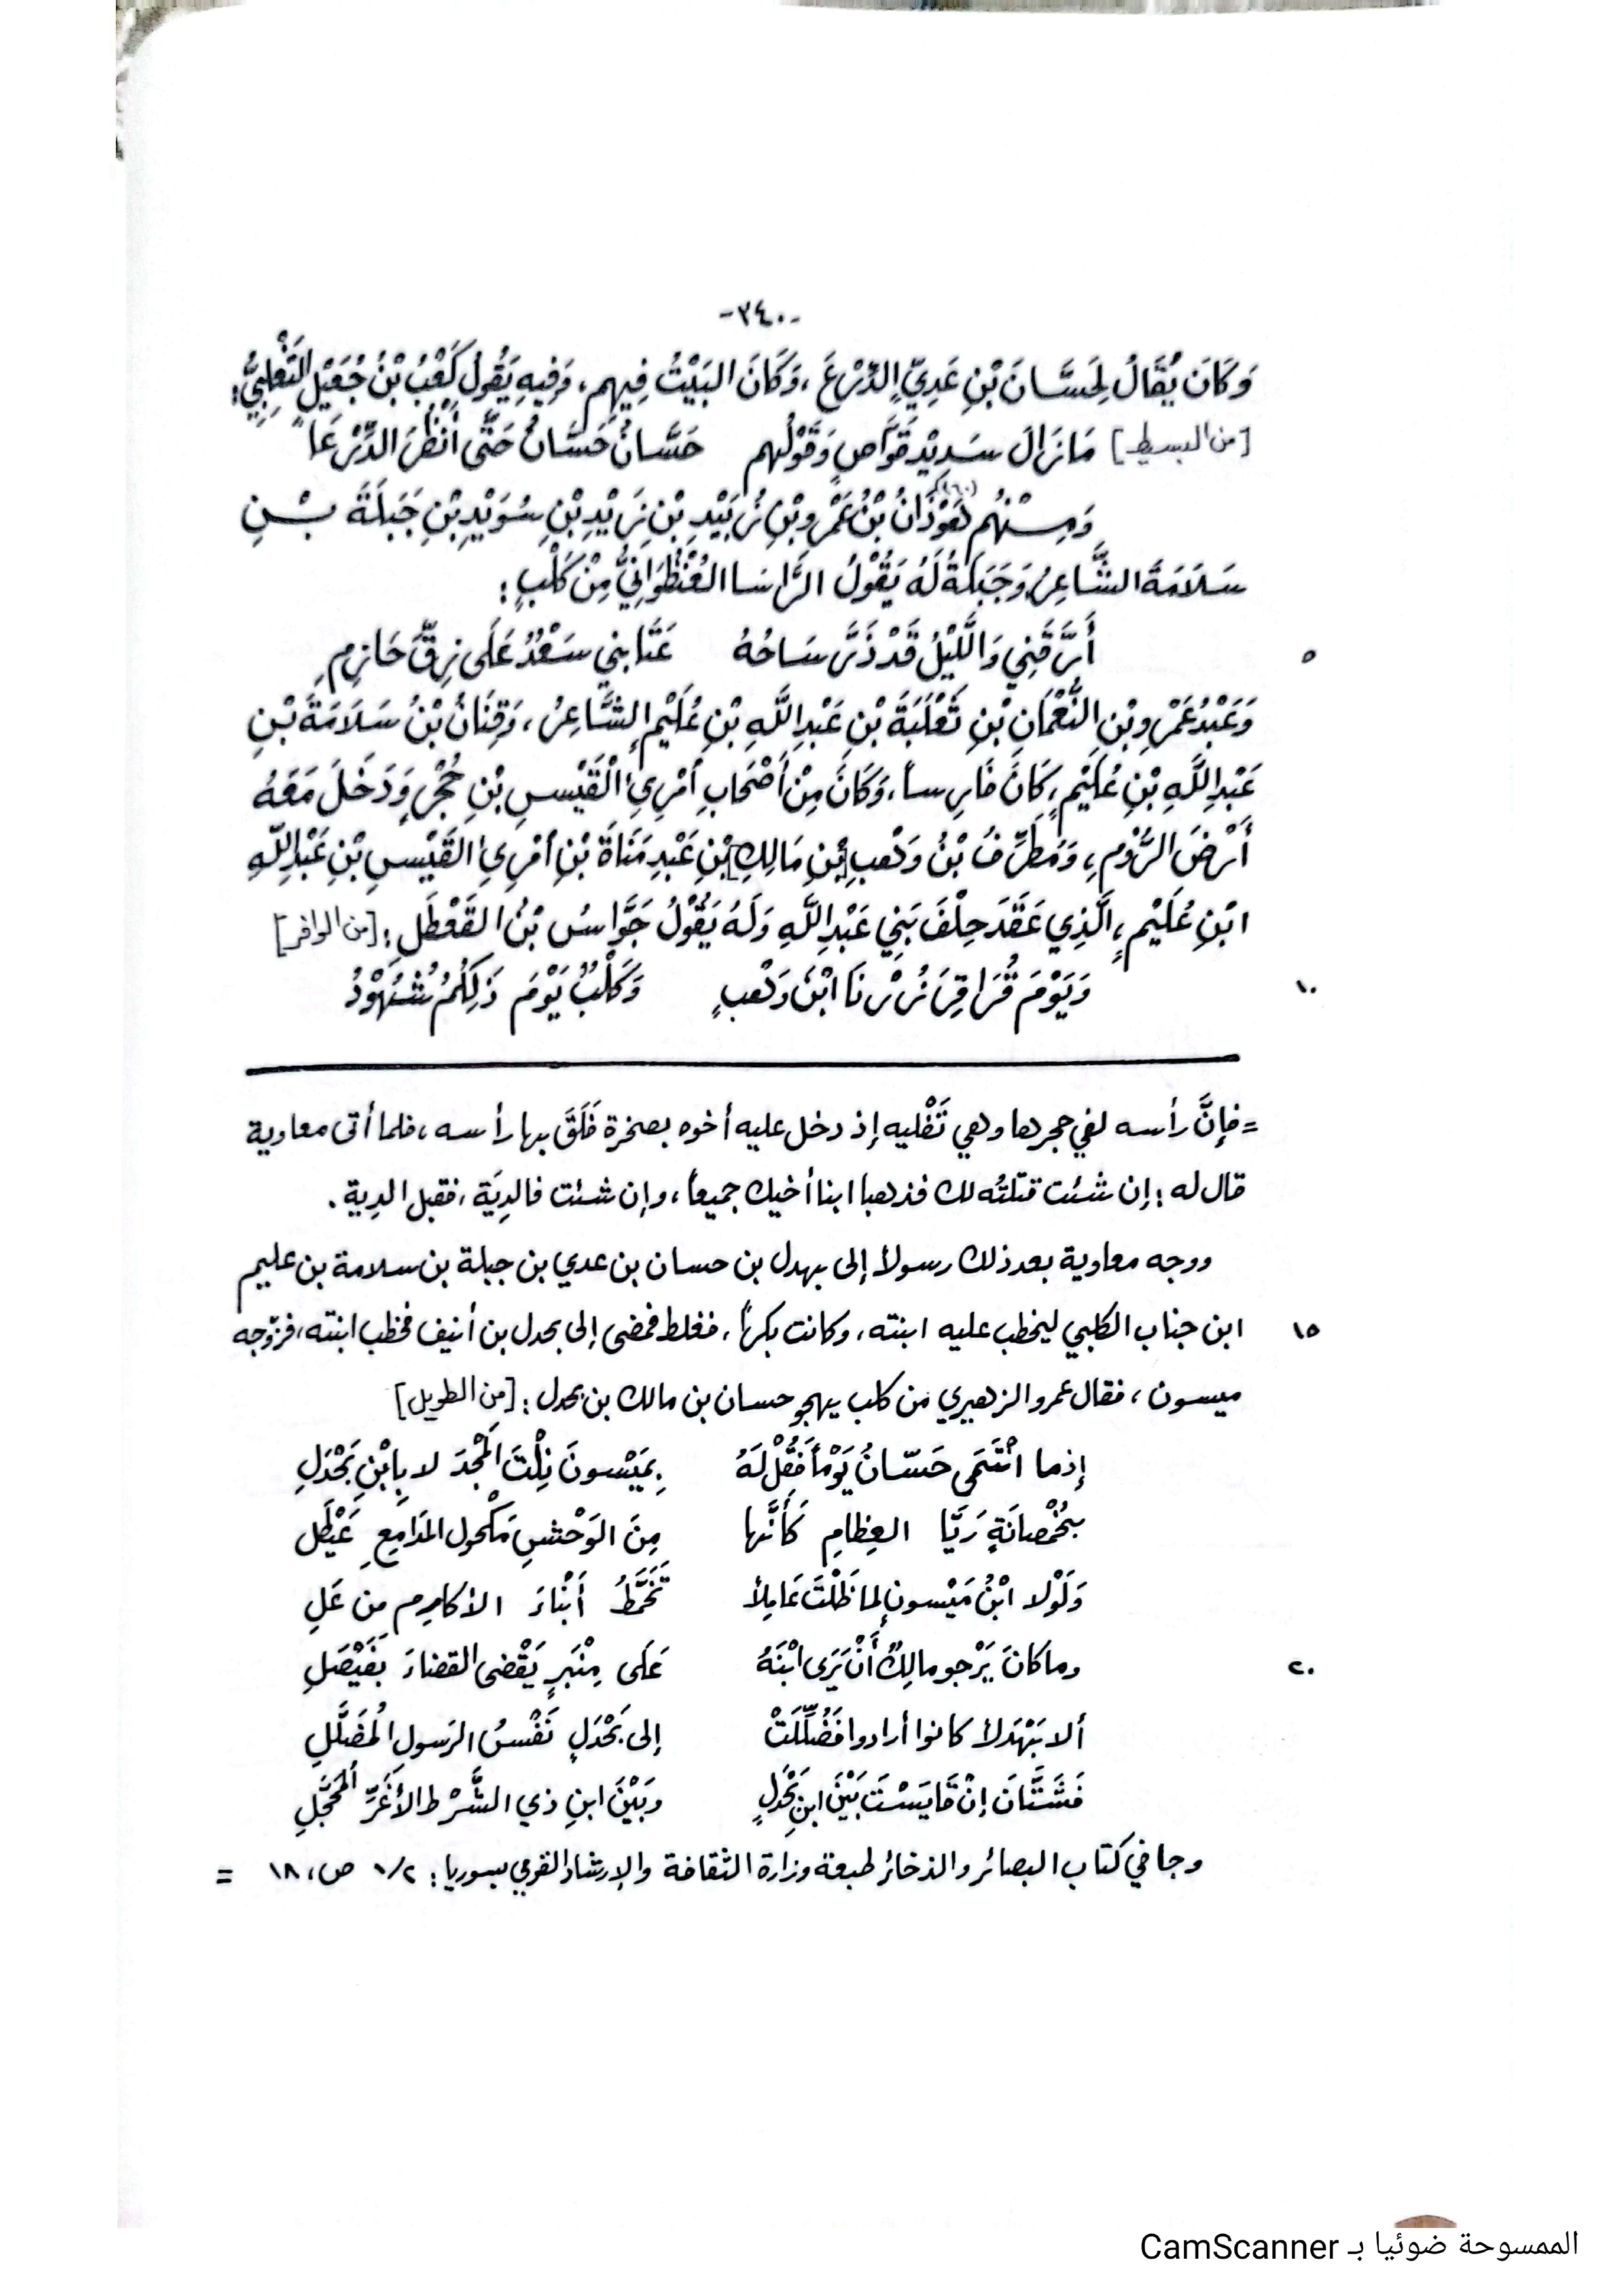 -٣٤٠-
وَكَانَ يُقَالُ لِحَسَّانَ بْنِ عَدِيٍّ الدِّرْعَ ، وَكَانَ البَيْتُ فِيهِم ، وَفِيهِ يَقُولُ كَعْبُ بْنُ جُعَيْلٍ التَّغْلِبِيُّ :
[من البسيط] مَا زَالَ سَدِيْدَ قَوَّاصٍ وَقَوْلُهم حَسَّانُ حَسَّانُ حَتَّى أَنْظُرَ الدِّرْعَا
وَمِنْهُم هَوْذَانُ بْنُ عَمْرِو بْنِ زُبَيْدِ بْنِ زَيْدِ بْنِ سُوَيْدِ بْنِ جَبَلَةَ بْنِ
سَلَامَةَ الشَّاعِرُ وَجَبَلَةُ لَهُ يَقُولُ الرَّاسَا العُنْظُوَانِيُّ مِنْ كَلْبٍ :
أَرَّقَنِي وَاللَّيْلُ قَدْ ذَرَّ سَاحُهُ عَتَابِي سَعْدٌ عَلَى زِقِّ حَازِمِ
٥
وَعَبْدُ عَمْرِو بْنِ النُّعْمَانِ بْنِ ثَعْلَبَةَ بْنِ عَبْدِ اللَّهِ بْنِ عُلَيْمٍ الشَّاعِرُ ، وَقِنَانُ بْنُ سَلَامَةَ بْنِ
عَبْدِ اللَّهِ بْنِ عُلَيْمٍ ، كَانَ فَارِساً ، وَكَانَ مِنْ أَصْحَابِ اُمْرِئِ الْقَيْسِ بْنِ حُجْرٍ وَدَخَلَ مَعَهُ
أَرْضَ الرُّوْمِ ، وَمُطَرِّفُ بْنُ وَهْبِ [بْنِ مَالِكِ] بْنِ عَبْدِ مَنَاةَ بْنِ اُمْرِئِ القَيْسِ بْنِ عَبْدِ اللَّهِ
ابْنِ عُلَيْمٍ ، الَّذِي عَقَدَ حِلْفَ بَنِي عَبْدِ اللَّهِ وَلَهُ يَقُوْلُ جَوَّاسُ بْنُ القَعْطَلِ : [من الوافر]
وَيَوْمَ قُرَاقِرَ زُرْنَا ابْنَ وَهْبٍ وَكَلْبٌ يَوْمَ ذَلِكُمُ شُهُوْدُ
١٠
= فإنَّ رأسه لفي حجرها وهي تَفْليه إذ دخل عليه أخوه بصخرة فَلَقَ بها رأسه ، فلما أتى معاوية
قال له : إن شئت قتلتُه لك فذهبا ابنا أخيك جميعاً ، وإن شئت فالدِيَة ، فقبل الدية .
ووجه معاوية بعد ذلك رسولاً إلى بهدل بن حسان بن عدي بن جبلة بن سلامة بن عليم
ابن جناب الكلبي ليخطب عليه ابنته ، وكانت بكراً ، فغلط فمضى إلى بحدل بن أنيف فخطب ابنته ، فزوّجه
١٥
ميسون ، فقال عمرو الزهيري من كلب يهجو حسان بن مالك بن بحدل : [من الطويل]
إذما انْتَمَى حَسّانُ يَوْماً فَقُلْ لَهُ بِمَيْسونَ نِلْتَ المَجْدَ لا بِابْنِ بَحْدَلِ
بخُمْصانَةٍ رَيَّا العِظامِ كَأَنَّها مِنَ الوَحْشِ مَكْحول المَدَامِعِ عَيْطَل
وَلَوْلا ابْنُ مَيْسونٍ لما ظَلْتَ عَامِلاً تَخَمَّطُ أَبْنَاءَ الأكَارِمِ مِن عَلِ
وما كانَ يَرْجو مالِكٌ أَنْ يَرَى ابْنَهُ عَلَى مِنْبَرٍ يَقْضى القضاءَ بفَيْصَلِ
٢٠
ألا بَهْدَلاً كانوا أرادوا فَضُلِّلَتْ إلى بَحْدَلٍ نَفْسُ الرَسولِ المُضَلَّلِ
فَشَتَّانَ إنْ قَايَسْتَ بَيْنَ ابنِ بَحْدَلٍ وبَيْنَ ابنِ ذي الشَّرْط الأغَرِّ المُحَجَّلِ
وجا في كتاب البصائر والذخائر طبعة وزارة الثقافة والإرشاد القومي بسوريا : ١/٢ ص ، ١٨ =
الممسوحة ضوئيا بـ CamScanner